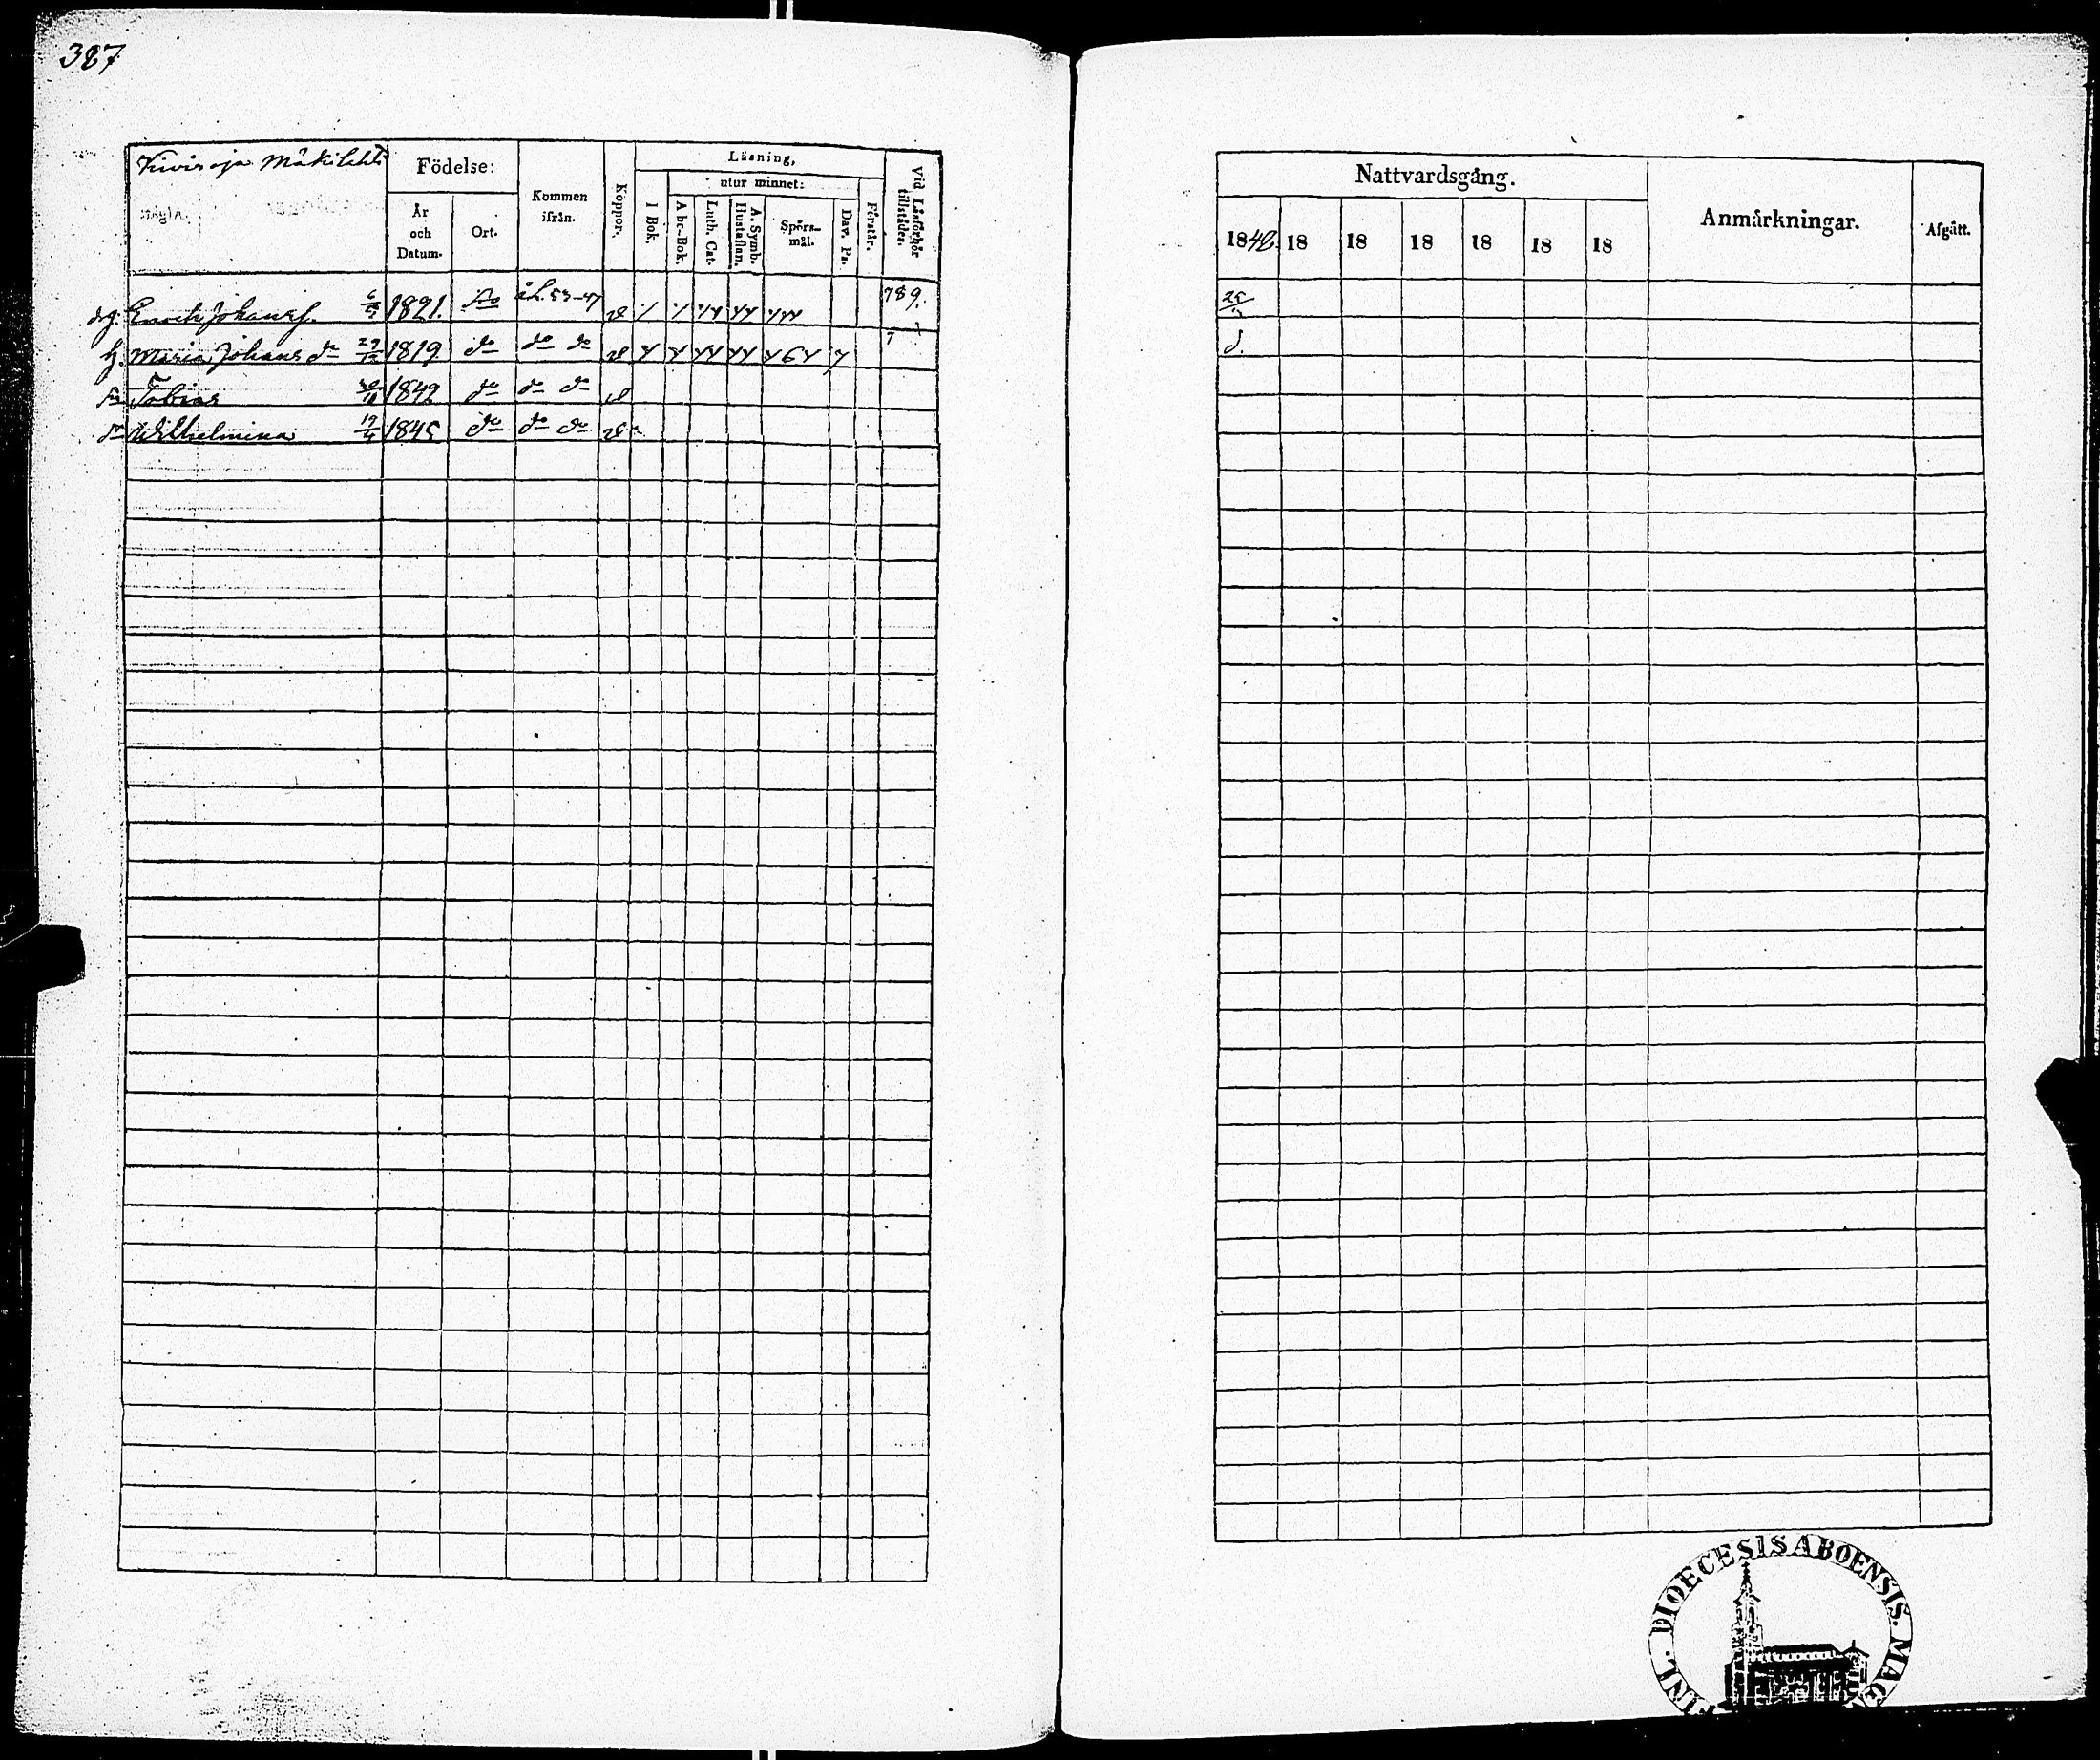 387
Kivioja Mäkilehto
Födelse:
År och Datum.
Ort.
Kommen ifrån.
Koppor.
Läsning,
I Bok.
utur minnet:
A bc-Bok.
Luth. Cat.
A. Symb. Hustaflan.
Spörs-mål.
Dav. Ps.
Förstår.
Vid Läsförhör tillstädes.
drg. Enoch Johanss. 6/5 1821. 53-47 789.
h. Maria Johans dr 29/12 1819 do do do 7
sn Tobias 30/10 1842 do do do
dr Wilhelmina 19/4 1845 do do do
Nattvardsgång.
1848. 18 18 18 18 18 18
Anmärkningar.
Afgått.
25
d.
FINL. DIOECESIS ABOENSIS. MAG